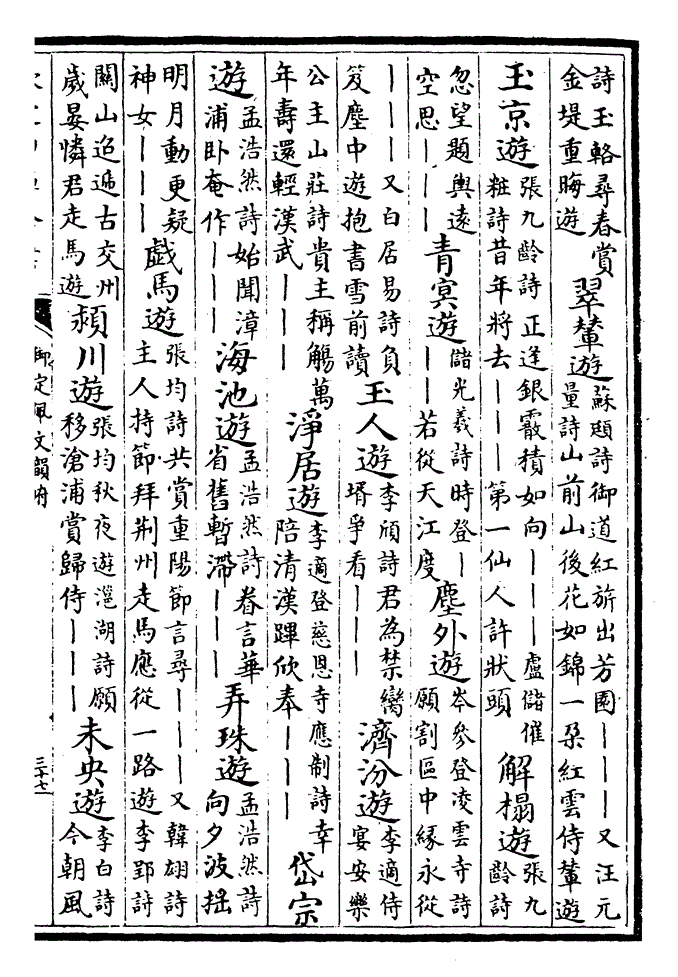 詩玉輅尋春賞金堤重晦遊翠輦遊蘇頲詩御道紅旂出芳園｜｜｜又汪元量詩山前山後花如錦一朶紅雲侍輦遊
玉京遊張九齡詩正逢銀霰積如向｜｜｜盧儲催粧詩昔年將去｜｜｜第一仙人許狀頭解榻遊張九齡詩
忽望題輿遠空思｜｜｜青冥遊儲光羲詩時登｜｜｜若從天江度塵外遊岑參登凌雲寺詩願割區中緣永從
｜｜｜又白居易詩負笈塵中遊抱書雪前讀玉人遊李頎詩君為禁臠壻爭看｜｜｜濟汾遊李適侍宴安樂
公主山莊詩貴主稱觴萬年壽還輕漢武｜｜｜淨居遊李適登慈恩寺應制詩幸陪清漢蹕欣奉｜｜｜岱宗
遊孟浩然詩始聞漳浦卧奄作｜｜｜海池遊孟浩然詩眷言華省舊暫滯｜｜｜弄珠遊孟浩然詩向夕波摇
明月動更疑神女｜｜｜戲馬遊張均詩共賞重陽節言尋｜｜｜又韓翃詩主人持節拜荆州走馬應從一路遊李郢詩
關山迢遞古交州歲晏憐君走馬遊潁川遊張均秋夜遊㴩湖詩願移滄浦賞歸侍｜｜｜未央遊李白詩今朝風
御定佩文韻府